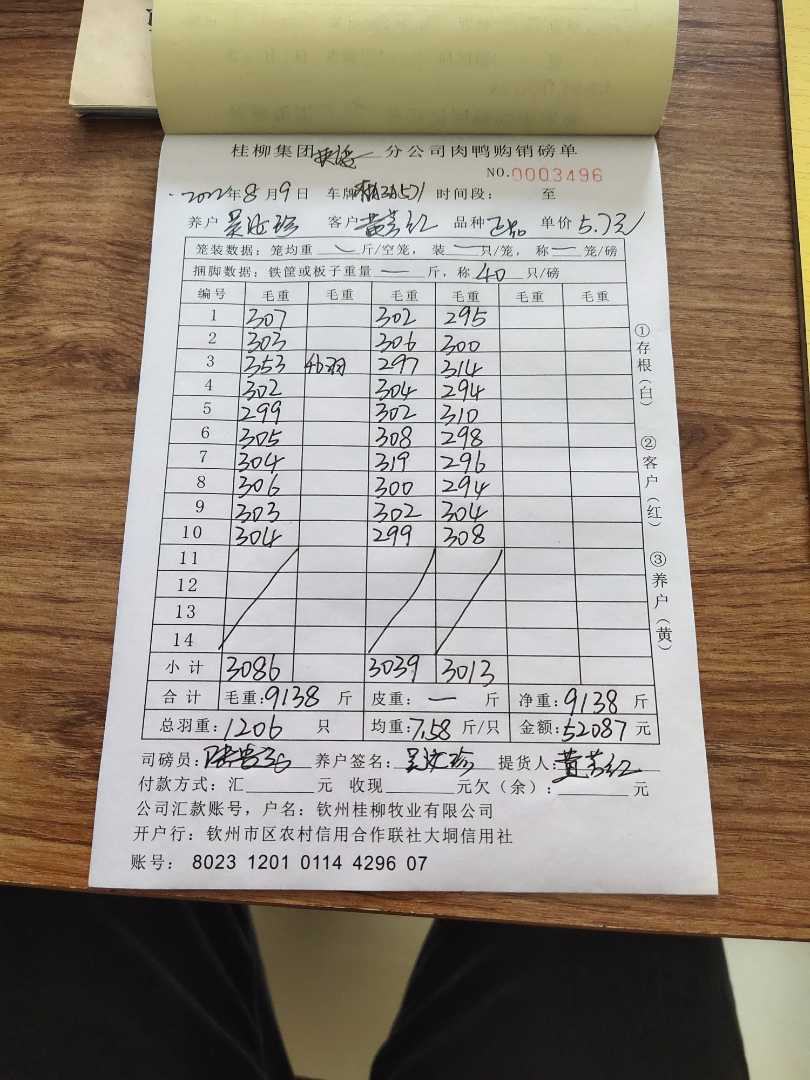 桂柳集团 分公司肉鸭购销磅单
NO.0003496
2022年8月9日 车牌 时间段： 至
养户 客户 黄芳红 品种 正品 单价 5.7元
笼装数据：笼均重 斤/空笼，装 一 只/笼，称 一 笼/磅
捆脚数据：铁筐或板子重量 一 斤，称 40 只/磅
编号 毛重 毛重 毛重 毛重 毛重 毛重
1 307 302 295
2 303 306 300
3 353 46羽 297 314
4 302 304 294
5 299 302 310
6 305 308 298
7 304 319 296
8 306 300 294
9 303 302 304
10 304 299 308
11
12
13
14
小计 3086 3039 3013
合计 毛重：9138 斤 皮重：一 斤 净重：9138 斤
总羽重：1206 只 均重：7.58 斤/只 金额：52087 元
司磅员： 养户签名： 提货人：黄芳红
付款方式：汇 元 收现 元欠（余）： 元
公司汇款账号，户名：钦州桂柳牧业有限公司
开户行：钦州市区农村信用合作联社大垌信用社
账号： 8023 1201 0114 4296 07
①存根（白）
②客户（红）
③养户（黄）